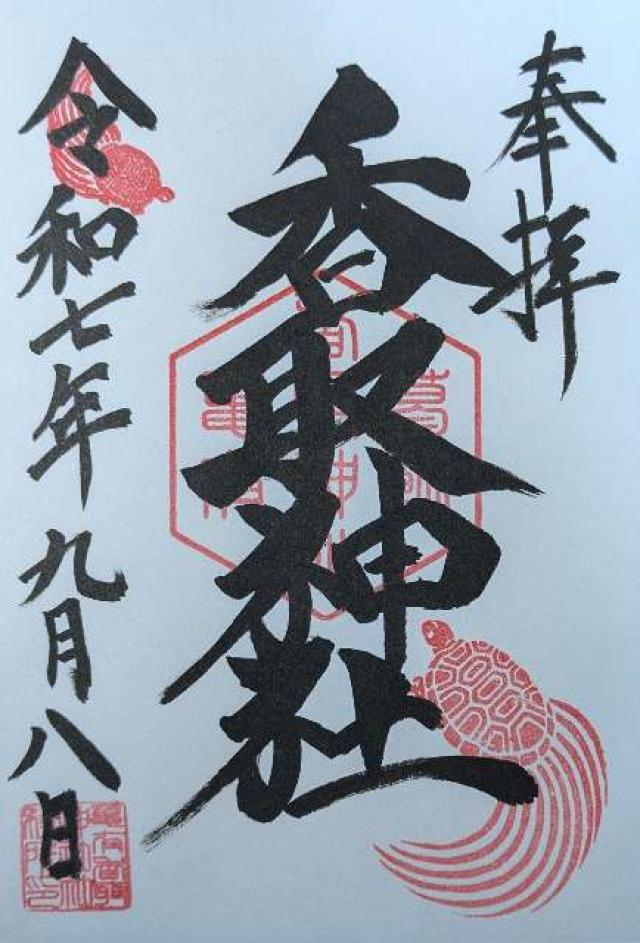 奉拝
香取神社
令和七年九月八日